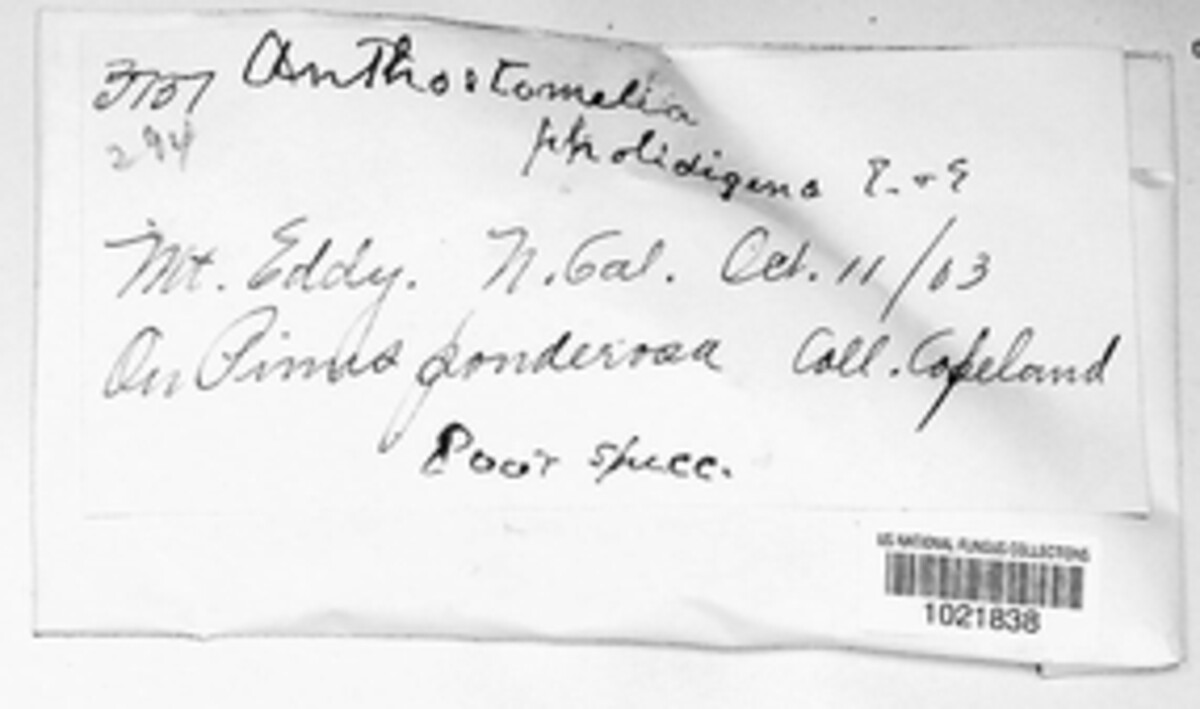 Anthostomella
294
pholidigena E. & E
Mt. Eddy. N. Cal. Oct. 11/03
On Pinus ponderosa Coll. Copeland
Poor spec.
US NATIONAL FUNGUS COLLECTIONS
1021838